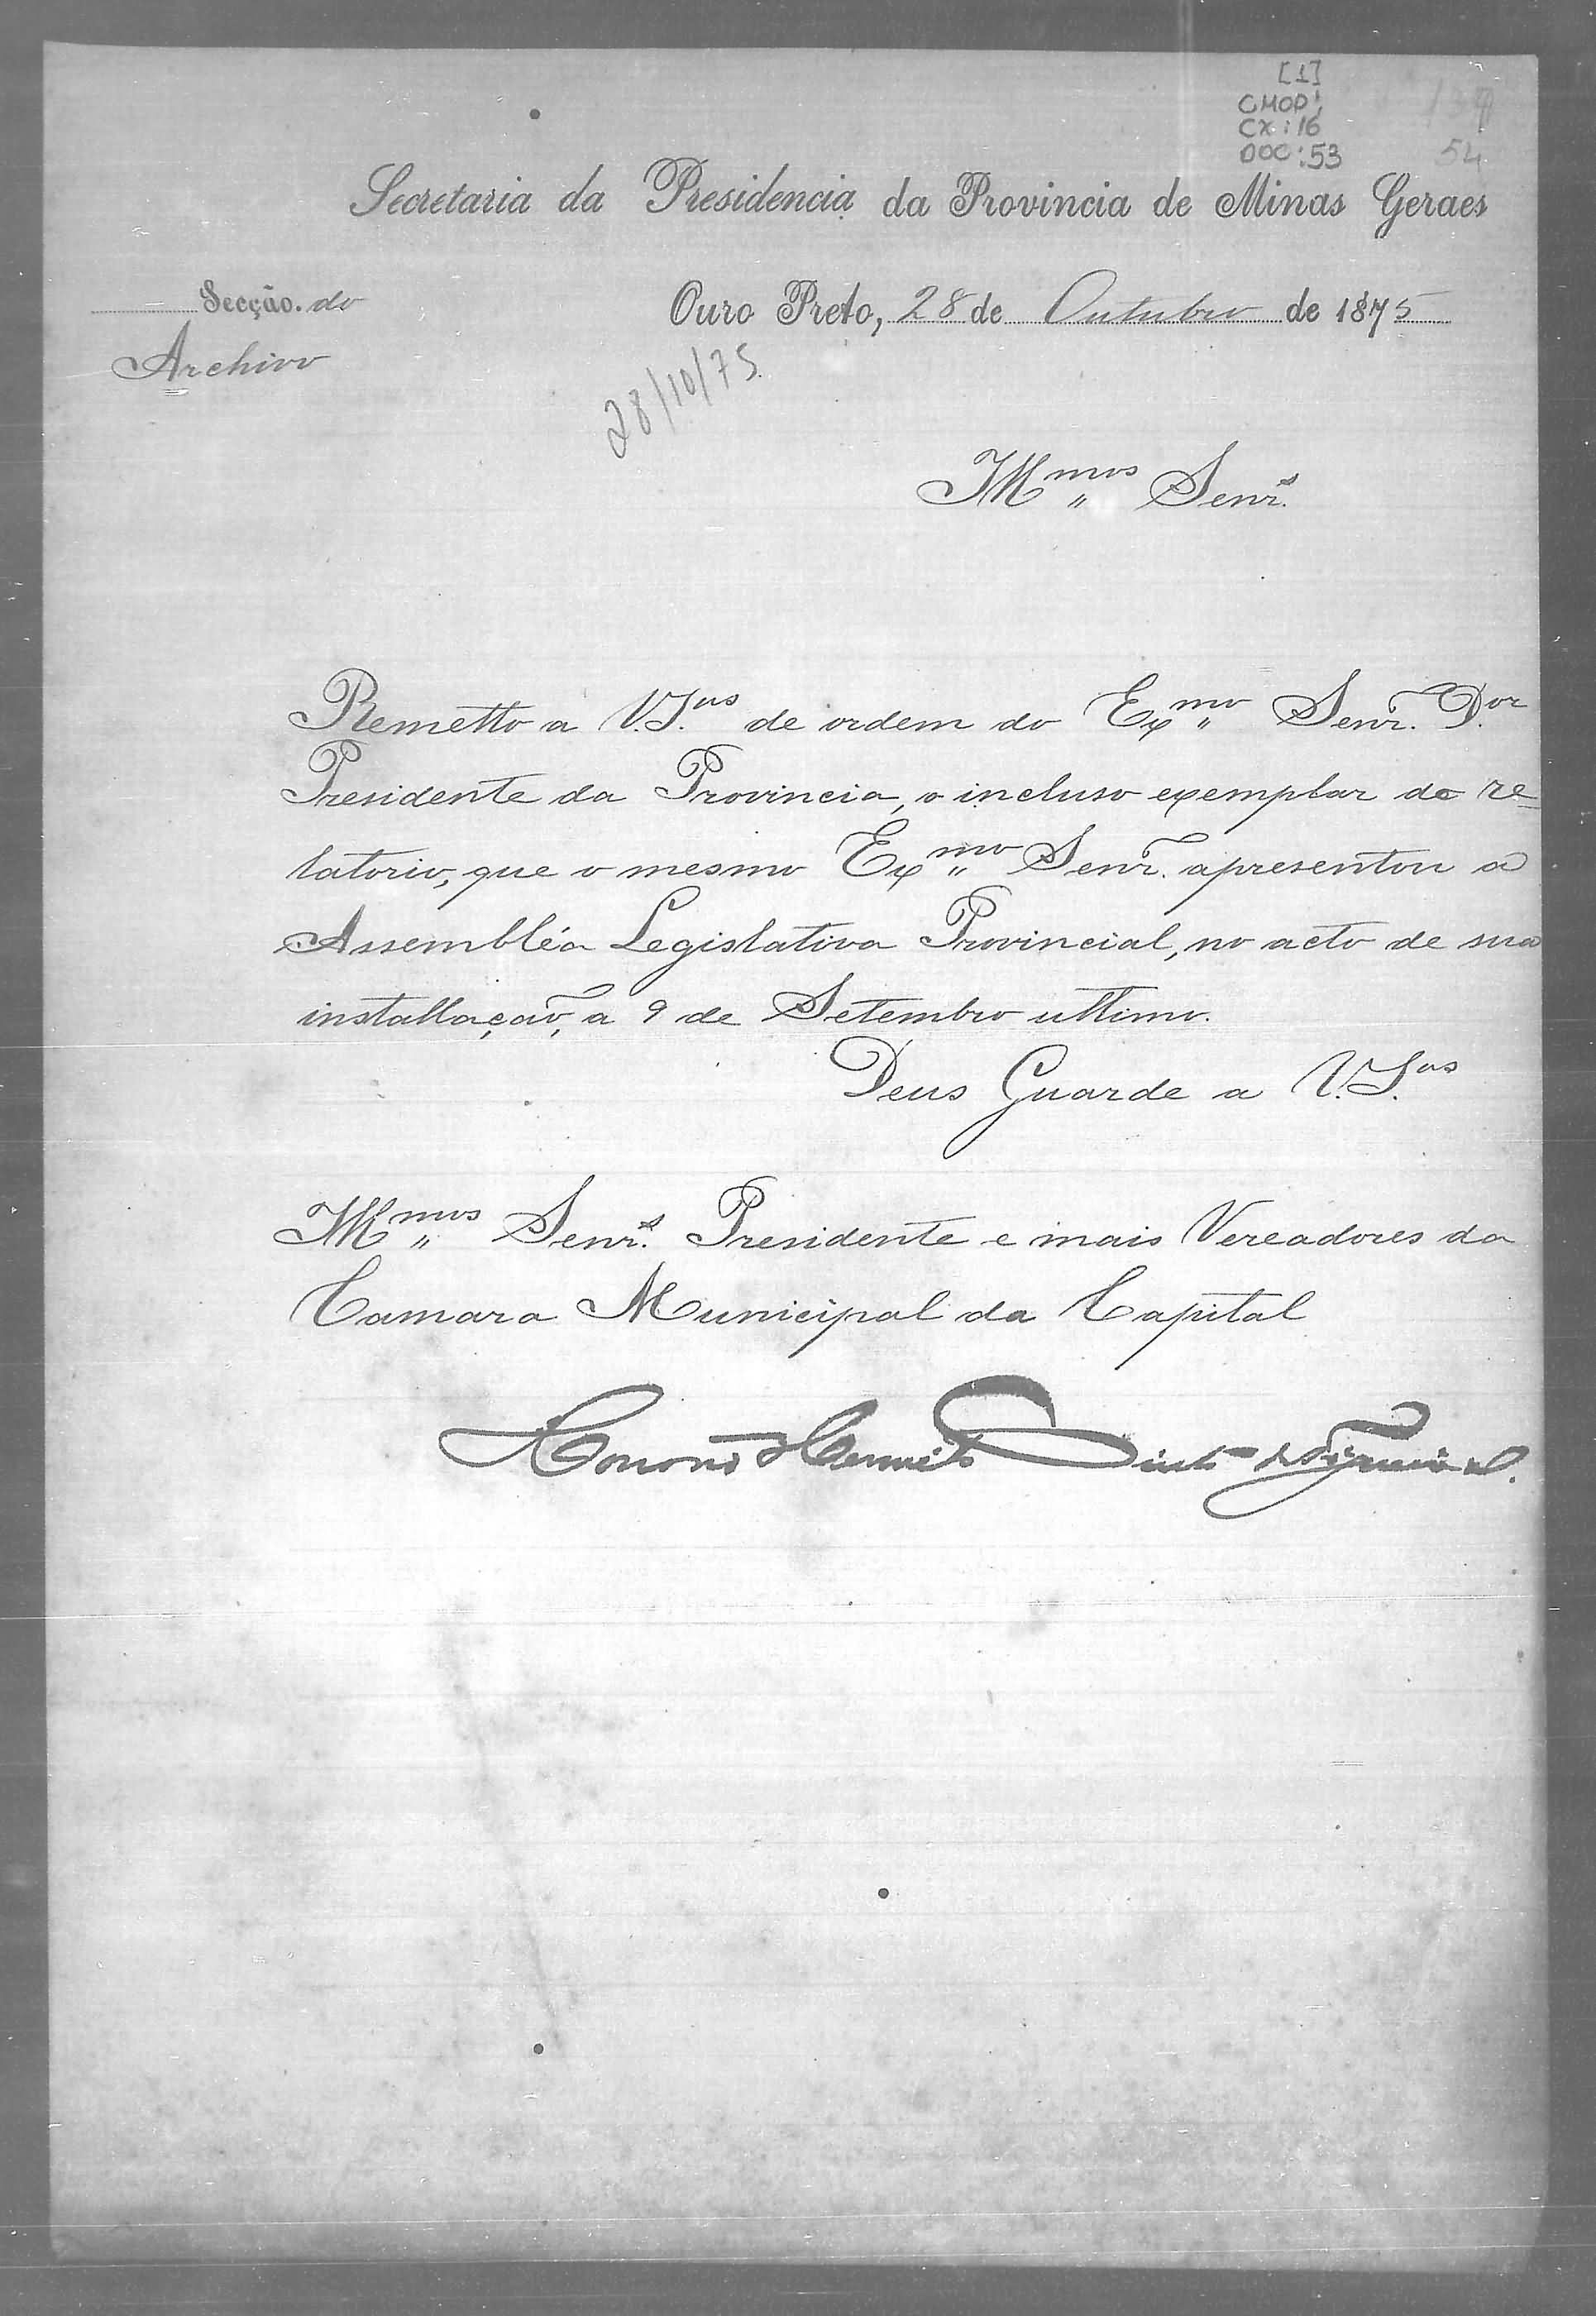 [1]
CMOP
CX: 16
DOC: 53 54
Secretaria da Presidencia da Provincia de Minas Geraes
Secção do
Archivo
Ouro Preto, 28 de Outubro de 1875
28/10/75.
Illmos Senrs.
Remetto a V.Sas de ordem do Exmo Senr. Dor.
Presidente da Provincia, o incluso exemplar do re=
latorio, que o mesmo Exmo Senr. apresentou a
Assembléa Legislativa Provincial, no acto de sua
installação, a 9 de Setembro ultimo.
Deus Guarde a V.Sas
Illmos Senrs. Presidente e mais Vereadores da
Camara Municipal da Capital
Hermeto